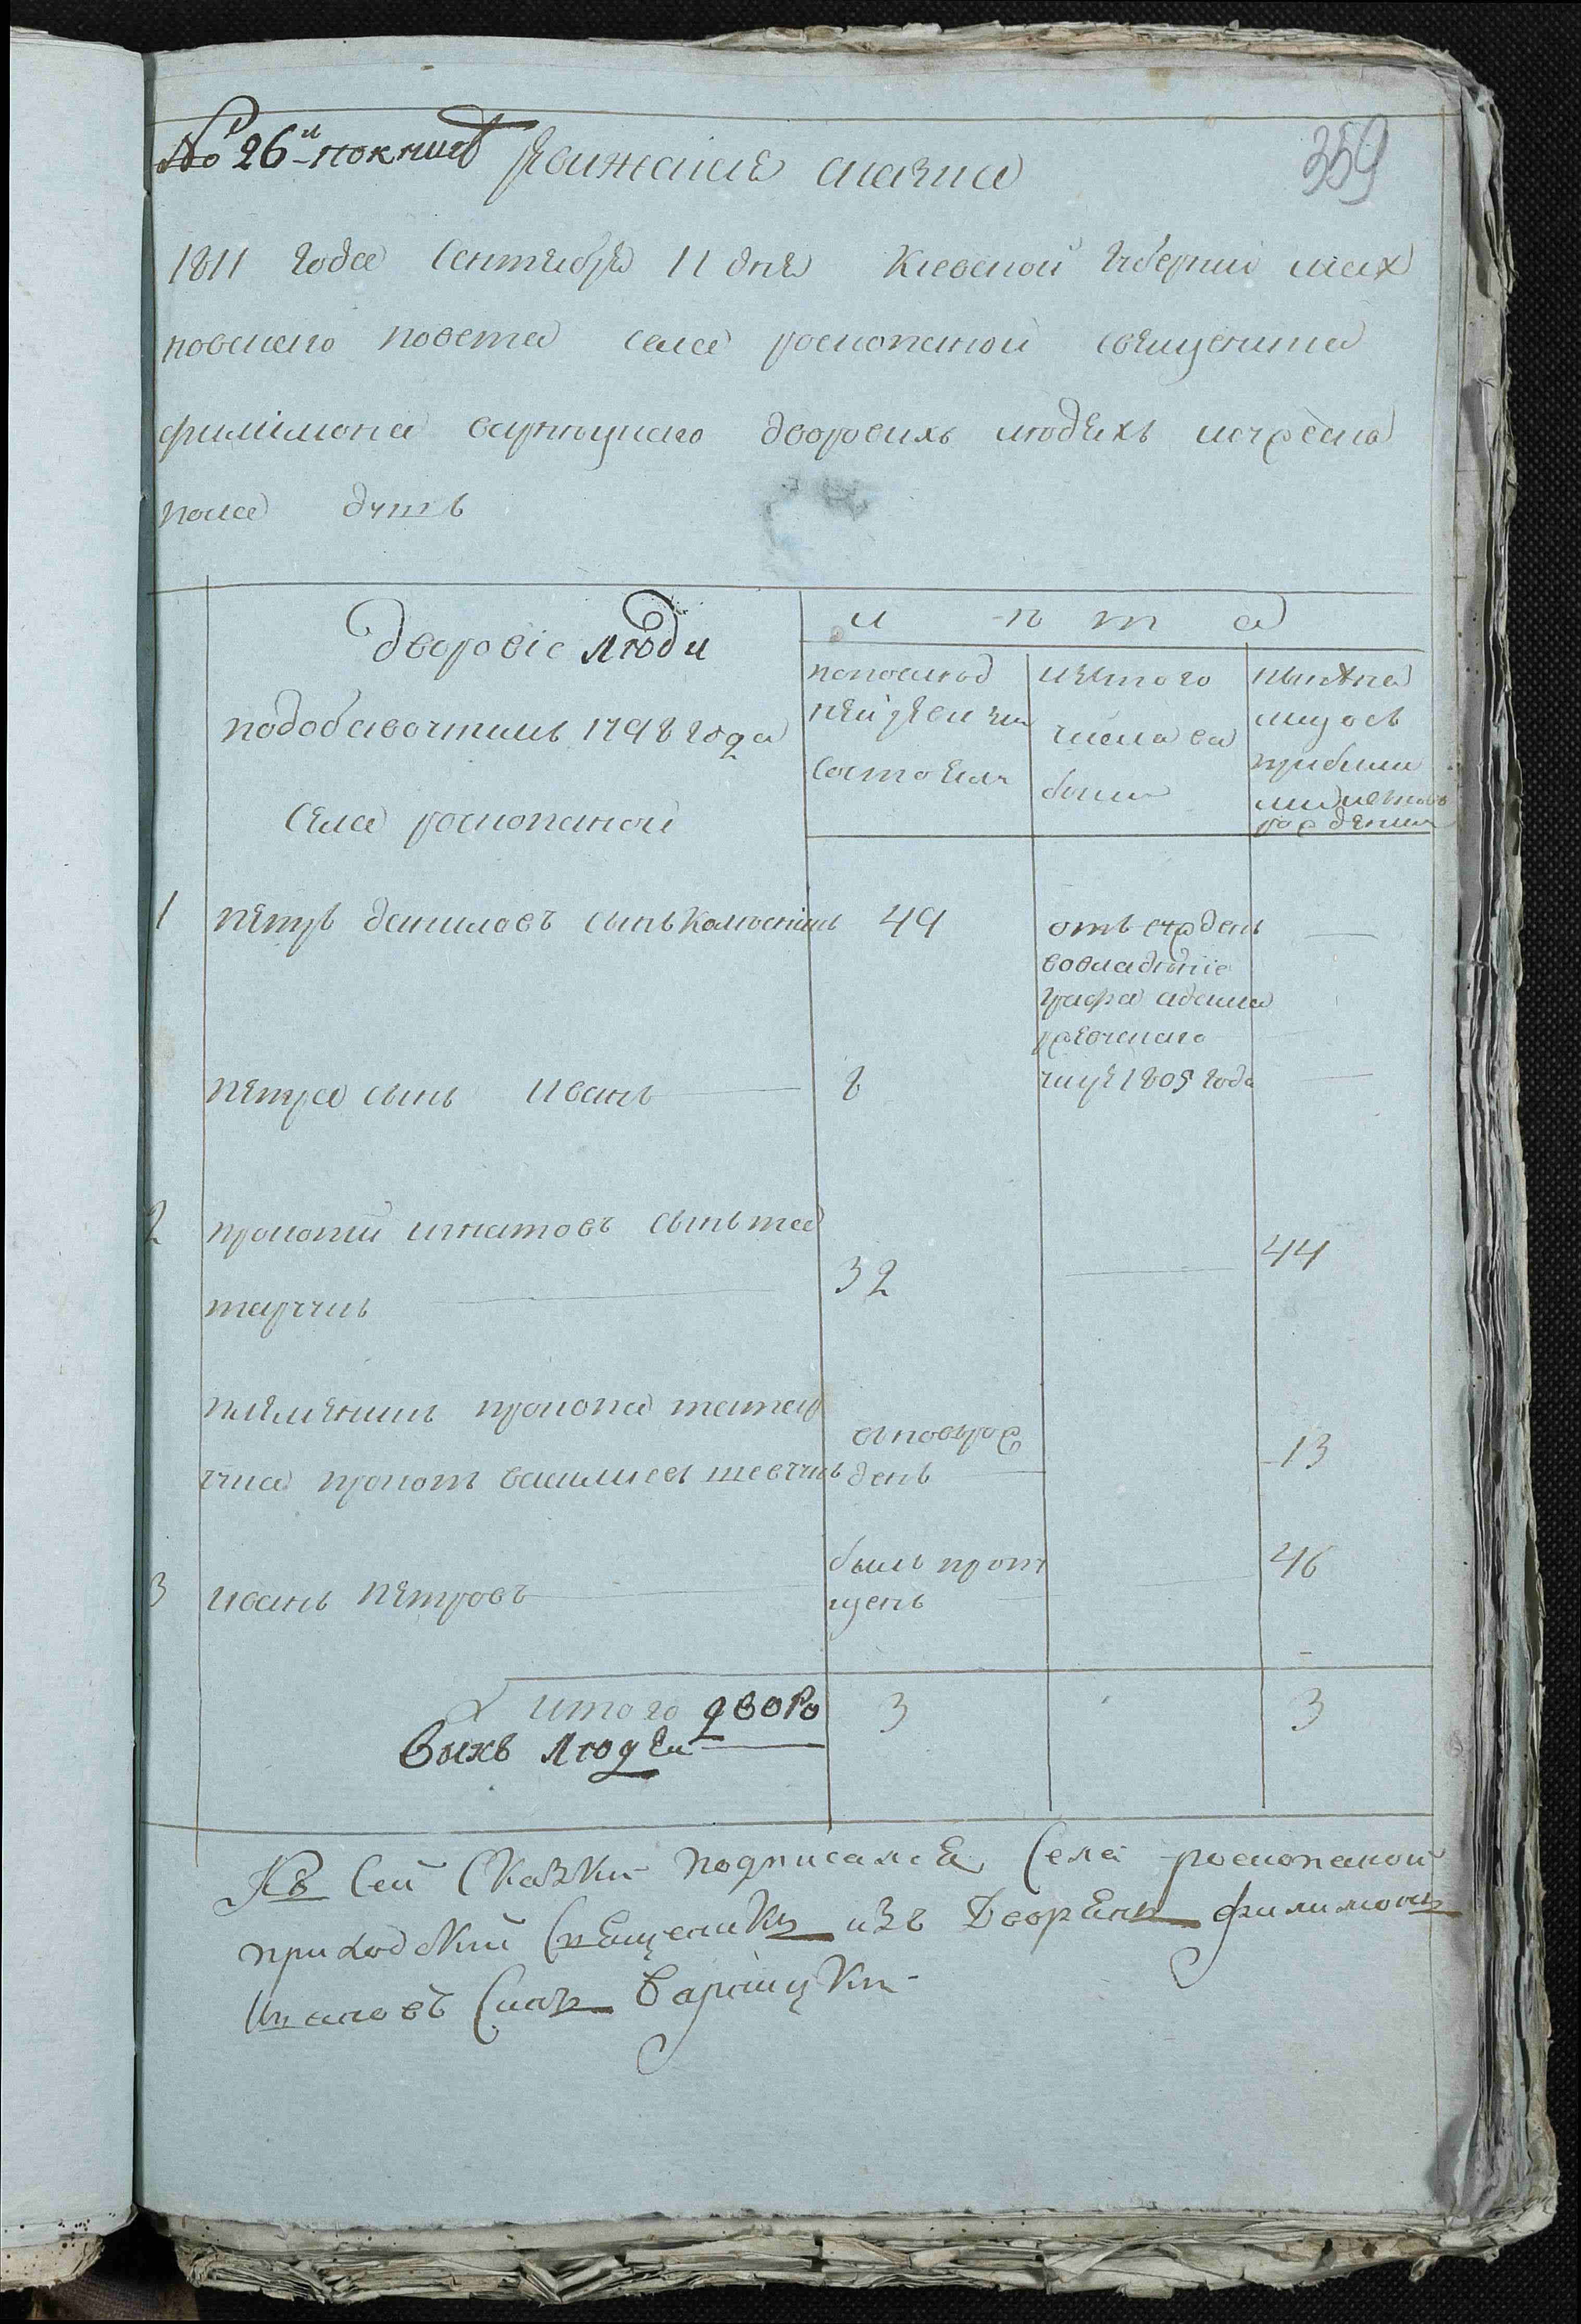 № 26й по книге Ревижская сказка 359
1811 года сентября 11 дня Киевской губернии мах
новского повета села роскопаной священика
филимона варницкаго дворовихъ людяхъ мужеска
пола душъ
дворовіе люди
л ѣ т а
по добавочнимъ 1798 года
села роскопаной
по послѣд
ней ревизии
состояли
изътого
числа ви
были
нынѣ на
лицо съ
прибили
ми и новъ
рожденими
1 петръ даниловъ синъ 49 отъ сужденъ
во владѣніе
графа адама
ржевускаго
петра синъ иванъ 8 1805 года
2 прокопій игнатовъ синъ та
тарчукъ 32 44
племеникъ прокопа татар
чука прокопъ василиевъ шевчукъ вновърож
денъ 13
3 иванъ петровъ былъ проп
щенъ 46
итого дворо
выхъ людей 3 3
Къ сей сказки подписался села роскопаной
приходский священикъ изъ дворянъ филимонъ
синъ варницки